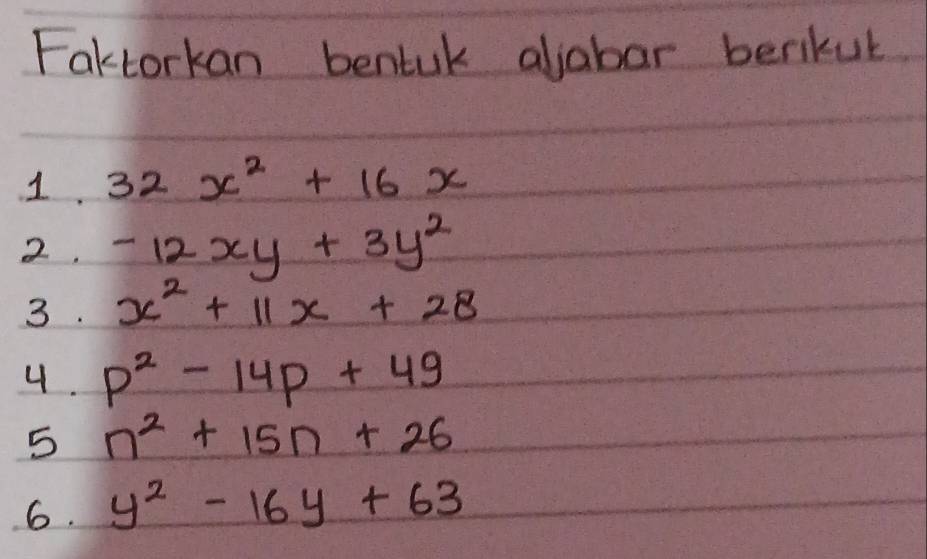 Faktorkan bentuk aljabar berikut
1. 32 x² + 16 x
2. -12 xy + 3y²
3. x² + 11x + 28
4. p² - 14p + 49
5 n² + 15n + 26
6. y² - 16y + 63